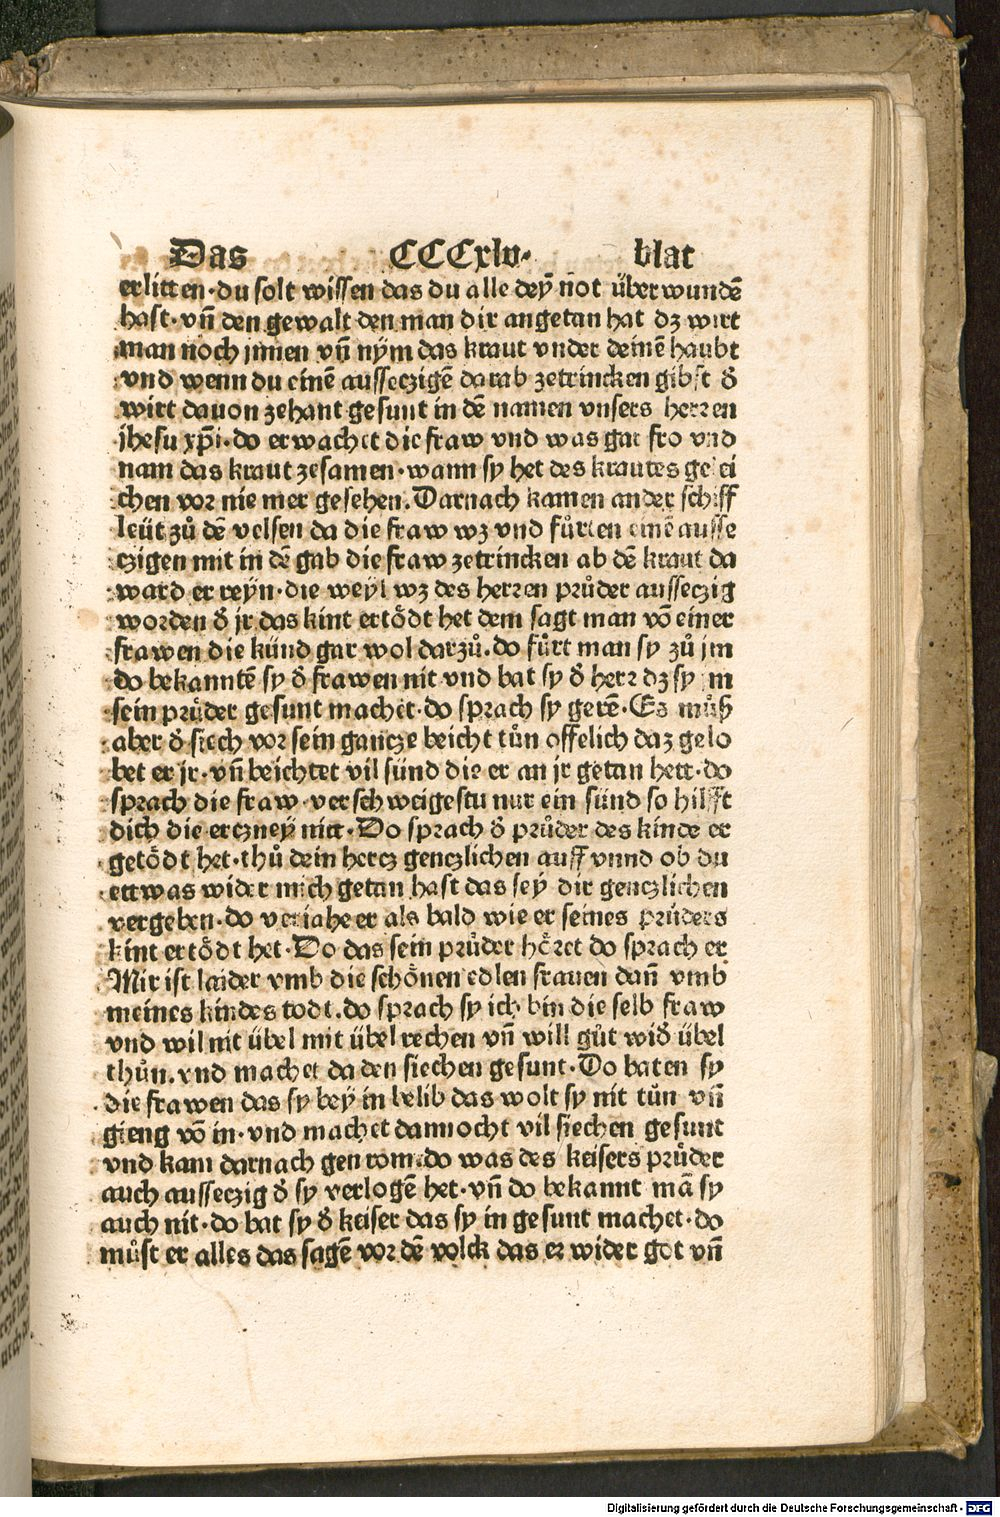 Das CCCxlv· blat
erlitten·du solt wissen das du alle deÿ not überwundē
hast·vn̄ den gewalt den man dir angetan hat dz wirt
man noch jnnen vn̄ nÿm das kraut vnder deinē haubt
vnd wenn du einē aussetzigē darab zetrincken gibst d̄
wirt dauon zehant gesunt in dē namen vnsers herren
jhesu xp̄i·do erwachet die fraw vnd was gar fro vnd
nam das kraut zesamen·wann sy het des krautes gelei
chen vor nie mer gesehen.Darnach kamen ander schiff
leüt zů dē velsen da die fraw wz vnd fůrten einē ausse
czigen mit in dē gab die fraw zetrincken ab dē kraut da
ward er reyn·die weyl wz des herren průder ausseczig
worden d̄ jr das kint ertödt het dem sagt man vō einer
frawen die künd gar wol darzů.do fůrt man sy zů jm
do bekanntē sy d̄ frawen nit vnd bat sy d̄ herr dz sy jm
sein průder gesunt machet·do sprach sy gerē·Ez můß
aber d̄ siech vor sein gancze beicht tůn offelich daz gelo
bet er jr·vn̄ beichtet vil sünd die er an jr getan hett·do
sprach die fraw·verschweigestu nur ein sünd so hilfft
dich die erczneÿ nitt·Do sprach d̄ průder des kinde er
getödt het·thů dein hercz genczlichen auff vnnd ob du
ettwas wider mich getan hast das seÿ dir genczlichen
vergeben·do veriahe er als bald wie er seines průders
kint ertödt het·Do das sein průder höret do sprach er
Mir ist laider vmb die schönen edlen frauen dan̄ vmb
meines kindes todt.do sprach sy ich bin die selb fraw
vnd wil nit übel mit übel rechen vn̄ will gůt wid̄ übel
thůn.vnd machet da den siechen gesunt·Do baten sy
die frawen das sy beÿ in belib das wolt sy nit tůn vn̄
gieng vō in·vnd machet dannocht vil siechen gesunt
vnd kam darnach gen rom·do was des keisers průder
auch aussetzig d̄ sy verlogē het·vn̄ do bekannt mā sy
auch nit·do bat sy d̄ keiser das sy in gesunt machet·do
můst er alles das sagē vor dē volck das er wider got vn̄
Digitalisierung gefördert durch die Deutsche Forschungsgemeinschaft - DFG